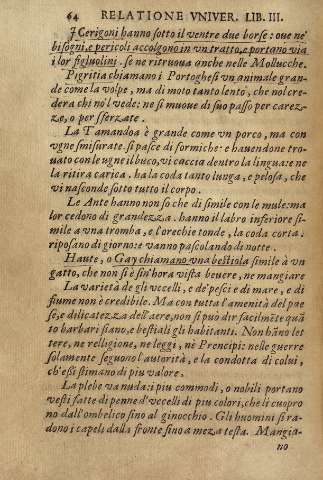 64 RELATIONE VNIVER. LIB. III.
I Cerigoni hanno sotto il ventre due borse: oue ne'
bisogni, e pericoli accolgono in vn tratto, e portano via
i lor figliuolini. se ne ritruoua anche nelle Molucche.
Pigritia chiamano i Portoghesi vn animale gran-
de come la volpe, ma di moto tanto lento, che nol cre-
dera chi nol vede: ne si muoue di suo passo per carez-
ze, o per sferzate.
La Tamandoa è grande come vn porco, ma con
vgne smisurate. si pasce di formiche: e hauendone tro-
uato con le ugne il buco, vi caccia dentro la lingua: e ne
la ritira carica. ha la coda tanto lunga, e pelosa, che
vi nasconde sotto tutto il corpo.
Le Ante hanno non so che di simile con le mule: ma
lor cedono di grandezza. hanno il labro inferiore si-
mile a vna tromba, e l'orecchie tonde, la coda corta.
riposano di giorno: e vanno pascolando di notte.
Haute, o Gay chiamano vna bestiola simile à vn
gatto, che non si è sin'hora vista beuere, ne mangiare
La varietà de gli vccelli, e de' pesci e di mare, e di
fiume non è credibile. Ma con tutta l'amenità del pae
se, e dilicatezza dell'aere, non si può dir facilmẽte quã
to barbari siano, e bestiali gli habitanti. Non hãno let
tere, ne relligione, ne leggi, nè Prencipi: nelle guerre
solamente seguono l'autorità, e la condotta di colui,
ch'essi stimano di piu valore.
La plebe va nuda: i piu commodi, o nobili portano
vesti fatte di penne d'vccelli di piu colori, che li cuopro
no dall'ombelico sino al ginocchio. Gli huomini si ra-
dono i capeli dalla fronte sino a meza testa. Mangia-
no